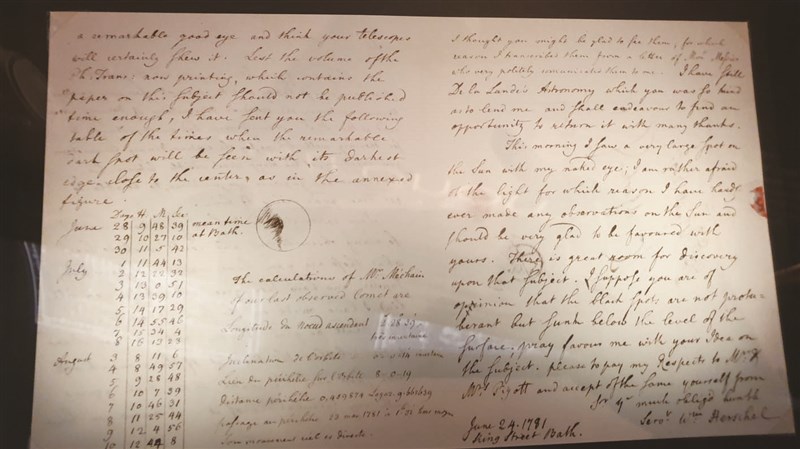 a remarkable good eye and think your telescopes
will certainly shew it. Lest the volume of the
Ph. Trans: now printing, which contains the
paper on this subject should not be published
time enough, I have sent you the following
table of the times when the remarkable
dark spot will be seen with its darkest
edge close to the center, as in the annexed
figure.
Days H. M. Sec
June 28 9 48 39 mean time
29 10 27 10 at Bath.
30 11 5 42
July 1 11 44 13
2 12 22 32
3 13 0 51
4 13 39 10
5 14 17 29
6 14 55 46
7 15 34 4
8 16 13 23
August 3 8 11 6
4 8 49 57
5 9 28 48
6 10 7 39
7 10 46 31
8 11 25 44
9 12 4 56
10 12 44 8
The calculations of Mr. Mechain
of our last observed Comet are
Longitude du Noeud ascendant
Inclination de l'orbite
Lieu du périhélie sur l'orbite 8-0-19
Distance périhélie
passage au périhélie 23 mai 1781 à
Son mouvement est direct.
I thought you might be glad to see them, for which
reason I transcribe them from a letter of Monr Messier
who very politely communicates them to me. I have still
De la Lande's Astronomy which you was so kind
as to lend me and shall endeavour to find an
opportunity to return it with many thanks.
This morning I saw a very large spot on
the Sun with my naked eye; I am rather afraid
of the light for which reason I have hardly
ever make any observations on the Sun and
should be very glad to be favoured with
yours. There is great room for discovery
upon that subject. I suppose you are of
oppinion that the black spots are not protu-
berant but sunk below the level of the
surface; pray favour me with your Idea on
the subject. please to pay my Respects to Mrs &
Mr. Pigott and accept of the same yourself from
Sr yr much obliged humble
Servt Wm Herschel
June 24. 1781
King Street Bath.